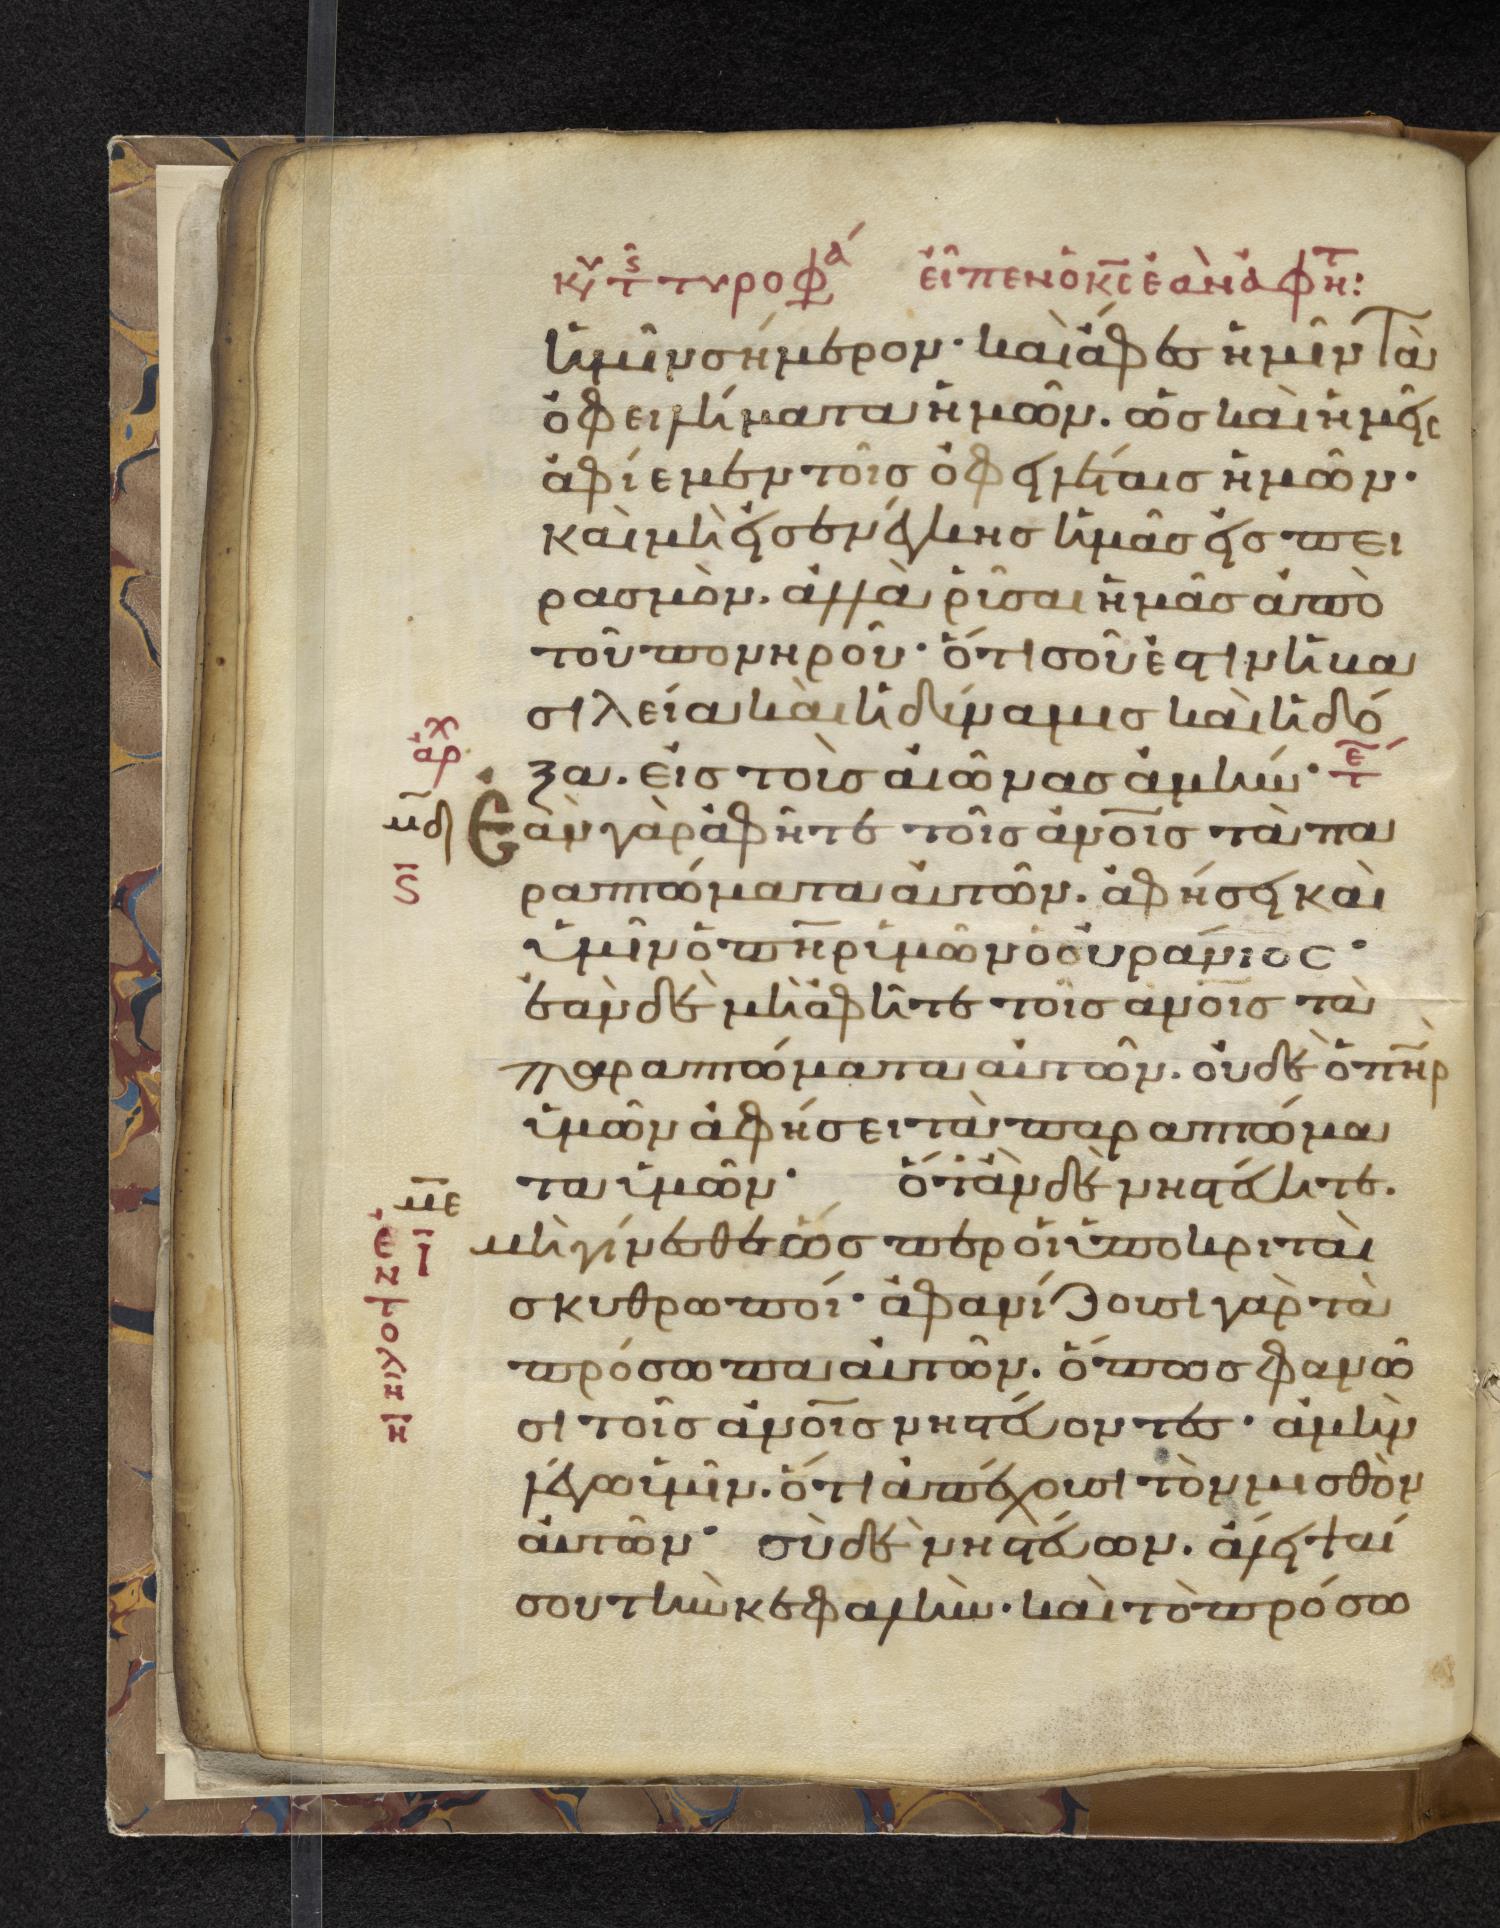 κυ τ τυροφα εἶπεν ὁ κς ἐὰν ἀφητ:
ἡμῖν σήμερον· καὶ ἄφες ἡμῖν τὰ
ὀφειλήματα ἡμῶν. ὡς καὶ ἡμεῖς
ἀφίεμεν τοῖς ὀφειλέταις ἡμῶν·
καὶ μὴ εἰσενέγκης ἡμᾶς εἰς πει
ρασμὸν. ἀλλὰ ῥῦσαι ἡμᾶς ἀπὸ
τοῦ πονηροῦ· ὅτι σοῦ ἐστιν ἡ βα
σιλεία καὶ ἡ δύναμις καὶ ἡ δό
αρχ
ξα. εἰς τοὺς αἰῶνας ἀμήν· τε
μδ Ἐὰν γὰρ ἀφῆτε τοῖς ἀνοις τὰ πα
ς
ραπτώματα αὐτῶν. ἀφήσει καὶ
ὑμῖν ὁ πηρ ὑμῶν ὁ οὐράνιος·
ἐὰν δὲ μὴ ἀφῆτε τοῖς ανοις τὰ
παραπτώματα αὐτῶν. οὐδὲ ὁ πηρ
ὑμῶν ἀφήσει τὰ παραπτώμα
τα ὑμῶν· ὅταν δὲ νηστεύητε.
με
μὴ γίνεσθε ὥσπερ οἱ ὑποκριταὶ
ι
σκυθρωποί· ἀφανίζουσι γὰρ τὰ
πρόσωπα αὐτῶν. ὅπως φανῶ
σι τοῖς ἀνοις νηστεύοντες· ἀμὴν
λέγω ὑμῖν. ὅτι ἀπέχουσι τὸν μισθὸν
αὐτῶν· σὺ δὲ νηστεύων. ἄλειψαί
σου τὴν κεφαλὴν· καὶ τὸ πρόσω